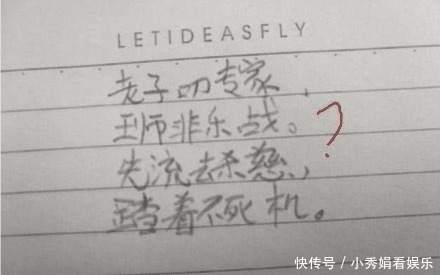 LETIDEASFLY
老子叨专家，
王师非乐战。？
先流去杀慈，
踏着不死机。
快传号/小秀娟看娱乐